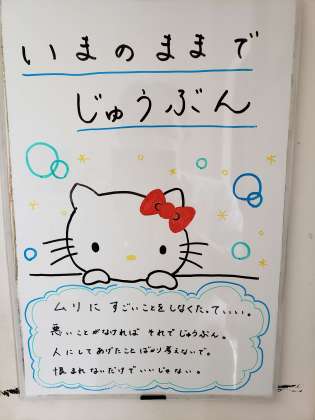 いまのままで
じゅうぶん
ムリに すごいことをしなくたっていい。
悪いことがなければ それでじゅうぶん。
人にしてあげたことばかり考えないで。
恨まれないだけでいいじゃない。